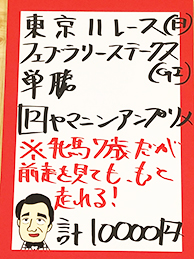 東京11レース(日)
フェブラリーステークス
(GI)
単勝
12ヤマニンアンプリメ
※牝馬7歳だが
前走を見ても、もっと
走れる!
計10000円